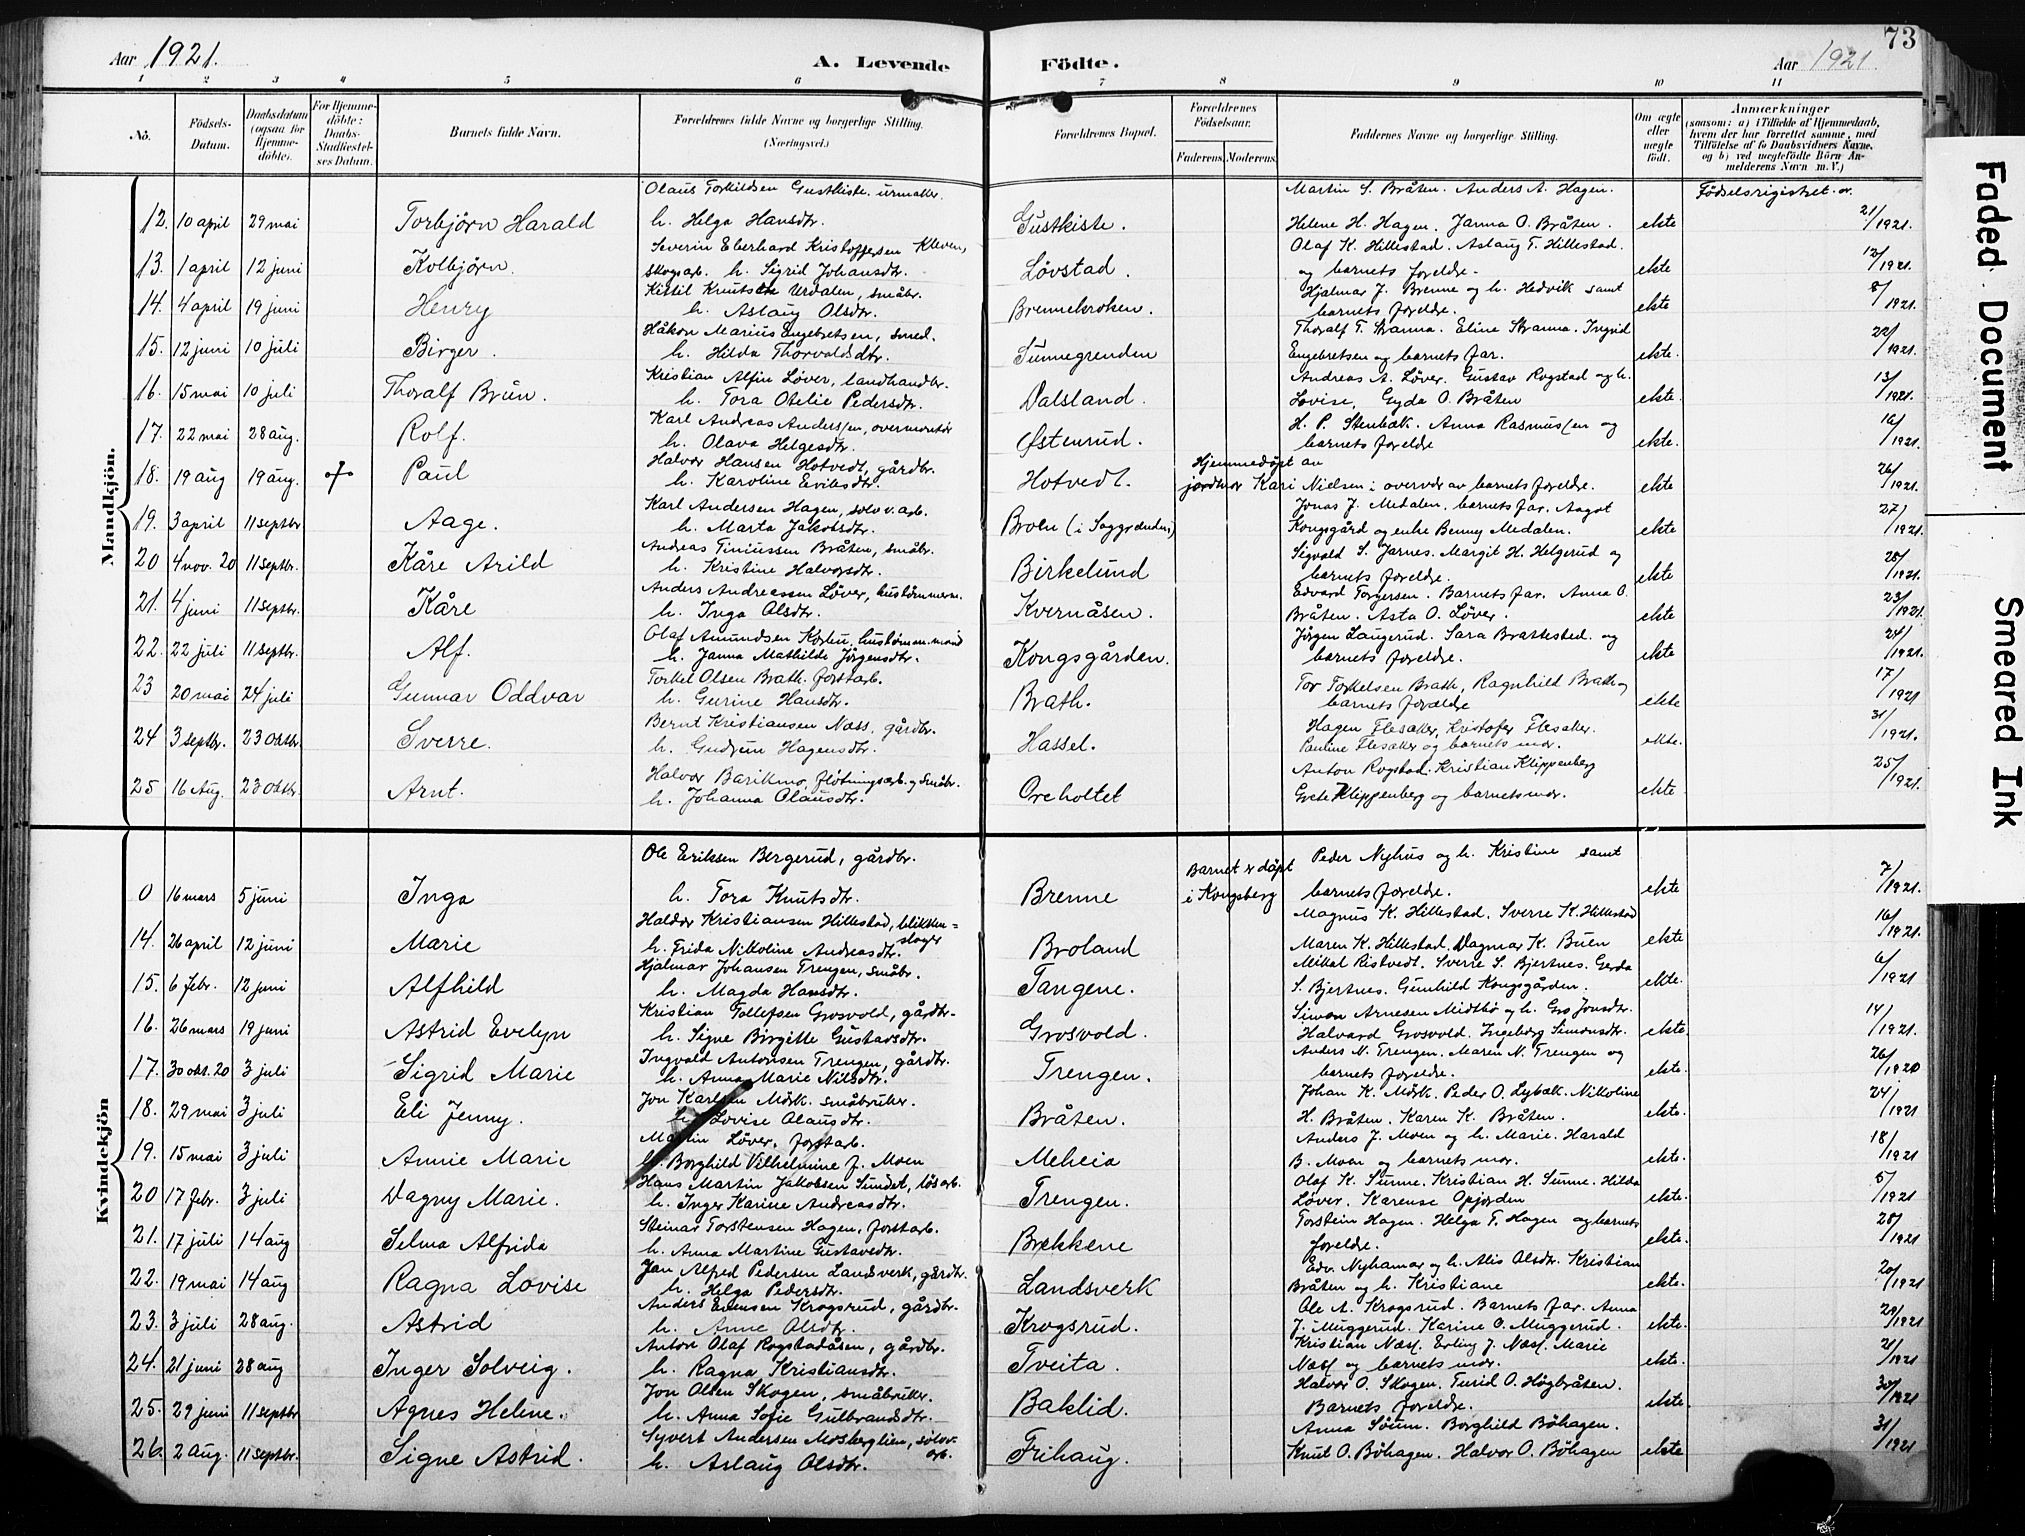 Aar 1921.
A. Levende Födte.
Aar 1921.
73
1 2 3 4 5 6 7 8 9 10 11
No.
Födsels-Datum.
Daabsdatum (ogsaa for Hjemme-döbte).
For Hjemme-döbte: Daabs-Stadfæstel-ses Datum.
Barnets fulde Navn.
Forældrenes fulde Navne og borgerlige Stilling.
(Næringsvei.)
Forældrenes Bopæl.
Forældrenes Födselsaar.
Faderens. Moderens.
Faddernes Navne og borgerlige Stilling.
Om ægte eller uægte födt.
Anmærkninger
(saasom: a) i Tilfælde af Hjemmedaab, hvem der har forrettet samme, med Tilföielse af to Daabsvidners Navne, og b) ved uægtefödte Börn An-melderens Navn m. V.)
Mandkjön.
Olaus Torkildsen Gustkiste. urmaker. Martin S. Bråten. Anders A. Hagen. Födselsrigistret. nr.
12. 10 april 29 mai Torbjørn Harald h. Helga Hansdtr. Gustkiste. Helene H. Hagen. Janna O. Bråten. ekte 21/1921.
Severin Eberhard Kristoffersen Kleven, Olaf K. Hillestad. Aslaug T. Hillestad.
13. 1 april 12 juni Kolbjørn. skogsarb. h. Sigrid Johansdtr. Løvstad. og barnets foreldre. ekte 12/1921.
Kittil Knutsen Urdalen, småbr. Hjalmar J. Brenne og h. Hedvik samt
14. 4 april 19 juni Henry h. Aslaug Olsdtr. Brennebroken. barnets foreldre. ekte 8/1921.
Håkon Marius Engebretsen, smed. Thoralf T. Stranna. Eline Stranna. Ingrid
15. 12 juni 10 juli Birger. h. Hilda Thorvaldsdtr. Sunnegrenden Engebretsen og barnets far. ekte. 22/1921.
Kristian Alfin Løver, landhandbr. Andreas A. Løver. Gustav Rogstad og h.
16. 15 mai 10 juli Thoralf Brun. h. Tora Otelie Pedersdtr. Dalsland. Lovise, Gyda O. Bråten ekte. 13/1921.
Karl Andreas Anderssen, overmontør H. P. Stenbæk. Anna Rasmussen og
17. 22 mai 28 aug. Rolf. h. Olava Helgesdtr. Østenrud. barnets foreldre ekte. 19/1921.
Halvor Hansen Hotvedt, gårdbr. Hjemmedøpt av
18. 19 aug 19 aug. Paul h. Karoline Eriksdtr. Hotvedt. jordmor Kari Nielsen i overvær av barnets foreldre. ekte 26/1921.
Karl Andersen Hagen, solvv.arb. Jonas J. Medalen. barnets far. Aagot
19. 3 april 11 septbr Aage. h. Marta Jakobsdtr. Broen (i Saggrenden) Kongsgård og enke Benny Medalen. ekte 27/1921.
Andreas Tiniussen Bråten, småbr. Sigvald S. Jarnes. Margit H. Helgerud og
20 4 nov. 20 11 septbr. Kåre Arild h. Kristine Halvorsdtr. Birkelund barnets foreldre. ekte 28/1921.
Anders Andreassen Løver, hustømmerm. Edvard Torgersen. Barnets far. Anna O.
21. 4 juni 11 septbr. Kåre h. Inga Olsdtr. Kvernåsen. Bråten. Asta O. Løver. ekte 23/1921.
Olaf Amundsen Korbu, hustømm.mand Jörgen Laugerud. Sara Brattested. og
22. 22 juli 11 septbr. Alf. h. Janna Mathilde Jörgensdtr. Kongsgården. barnets foreldre. ekte 24/1921.
Torkel Olsen Brath. forstarb. Tor Torkelsen Brath, Ragnhild Brath og
23 20 mai 24 juli Gunnar Oddvar h. Gurine Hansdtr. Brath. barnets forældre ekte 17/1921
Bernt Kristiansen Næss, gårdbr. Hagen Flesaker, Kristofer Flesaker.
24 3 septbr. 23 oktbr. Sverre. h. Gudrun Hagensdtr. Hassel. Pauline Flesaker og barnets mor. ekte. 31/1921.
Halvor Barikmo, fløtningsarb. og småbr. Anton Rogstad. Kristian Klippenberg
25 16 Aug. 23 oktbr. Arnt. h. Johanna Olausdtr. Oreholtet Grete Klippenberg og barnets mor. ekte 25/1921.
Kvindekjön
Ole Eriksen Bergerud, gårdbr. Barnet er døpt Peder Nyhus og h. Kristine samt
0 16 mars 5 juni Inga h. Tora Knutsdtr. Brenne i Kongsberg barnets foreldre. ekte 7/1921.
Haldor Kristiansen Hillestad, blikken=slager Magnus K. Hillestad. Sverre K. Hillestad
14. 26 april 12 juni Marie h. Frida Nikoline Andreasdtr. Broland Maren K. Hillestad. Dagmar K. Buen ekte 16/1921.
Hjalmar Johansen Trengen, småbr. Mikal Ristvedt. Sverre S. Bjertnes. Gerda
15. 6 febr. 12 juni Alfhild h. Magda Hansdtr. Tangene. S. Bjertnes. Gunhild Kongsgården. ekte. 6/1921
Kristian Tollefsen Grosvold, gårdbr. Simon Arnesen Midtbø og h. Gro Jonsdtr.
16. 26 mars 19 juni Astrid Evelyn h. Signe Birgitte Gustadsdtr. Grosvold. Halvard Grosvold. Ingeborg Simonsdtr. ekte. 14/1921.
Ingvald Antonsen Trengen, gårdbr. Anders N. Trengen. Maren N. Trengen og
17. 30 okt. 20 3 juli Sigrid Marie h. Anna Marie Nilsdtr. Trengen. barnets foreldre. ekte. 26/1920
Jon Karlsen Mörk. småbruker. Johan K. Mörk. Peder O. Lybæk. Nikoline
18. 29 mai 3 juli Eli Jenny. h. Lovise Olausdtr. Bråten. H. Bråten. Karen K. Bråten. ekte. 24/1921
Martin Løver, forstarb. Anders J. Moen og h. Marie. Harald
19. 15 mai 3 juli Annie Marie h. Borghild Vilhelmine J. Moen Meheia B. Moen og barnets mor. ekte. 18/1921
Hans Martin Jakobsen Sundet, løsarb. Olaf K. Sunne. Kristian H. Sunne. Hilda
20 17 febr. 3 juli Dagny Marie. h. Inger Karine Andreasdtr. Trengen. Løver. Karense Opjorden ekte. 5/1921
Steinar Torstensen Hagen, forstarb. Torstein Hagen. Helga T. Hagen og barnets
21. 17 juli 14 aug Selma Alfrida h. Anna Martine Gustavsdtr. Brekkene foreldre. ekte. 28/1921
Jan Alfred Pedersen Landsverk, gårdbr. Edv. Nyhamar og h. Alis Olsdtr. Kristian
22. 19 mai 14 aug Ragna Lovise h. Helga Pedersdtr. Landsverk Bråten og h. Kristiane ekte. 20/1921
Anders Evensen Krogsrud, gårdbr. Ole A. Krogsrud. Barnets far. Anna
23. 3 juli 28 aug. Astrid h. Anne Olsdtr. Krogsrud. J. Muggerud. Karine O. Muggerud. ekte. 29/1921
Anton Olaf Rogstadåsen, gårdbr. Kristian Næss. Erling J. Næss. Marie
24. 21 juni 28 aug Inger Solveig. h. Ragna Kristiansdtr. Tveita. Næss og barnets mor. ekte. 21/1921
Jon Olsen Skogen, småbruker. Halvor O. Skogen. Turid O. Högbråten.
25. 29 juni 11 septbr Agnes Helene. h. Anna Sofie Gulbrandsdtr. Baklid. Barnets foreldre. ekte. 30/1921
Syvert Andersen Mosberglien, sølvv.arb. Anna Söum. Borghild Böhagen.
26. 2 aug. 11 septbr. Signe Astrid. h. Aslaug Olsdtr. Frihaug. Knut O. Böhagen. Halvor O. Böhagen ekte 31/1921
Faded Document
Smeared Ink